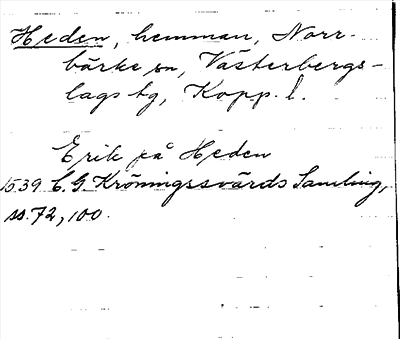 Heden, hemman, Norr-
bärke sn, Västerbergs-
lags tg, Kopp. l.
Erik på Heden
1539 C.G. Kröningssvärds Samling,
ss. 72, 100.